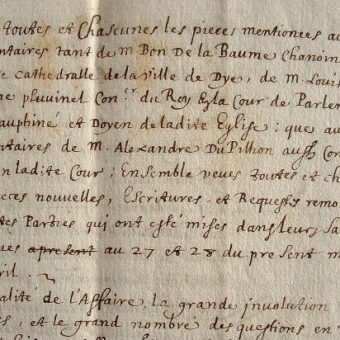 toutes et Chascunes les pieces mentionees au
entaires tant de m Bon De la Baume Chanoin
e Cathedralle de la ville de Dye, de M. Louis
ne pluvinel Con.er du Roy En la Cour de Parlem
auphiné et Doyen de ladite Eglise; que au
entaires de M. Alexandre Du Pilhon aussy Con
n ladite Cour; Ensemble veues toutes et ch
eces nouvelles, Escritures, et Requestes remo
tes Parties qui ont esté mises dans leurs sa
ues apresent au 27 et 28 du present m
ril.
alité de l'Affaire, la grande involution
s, et le grand nombre des questions en